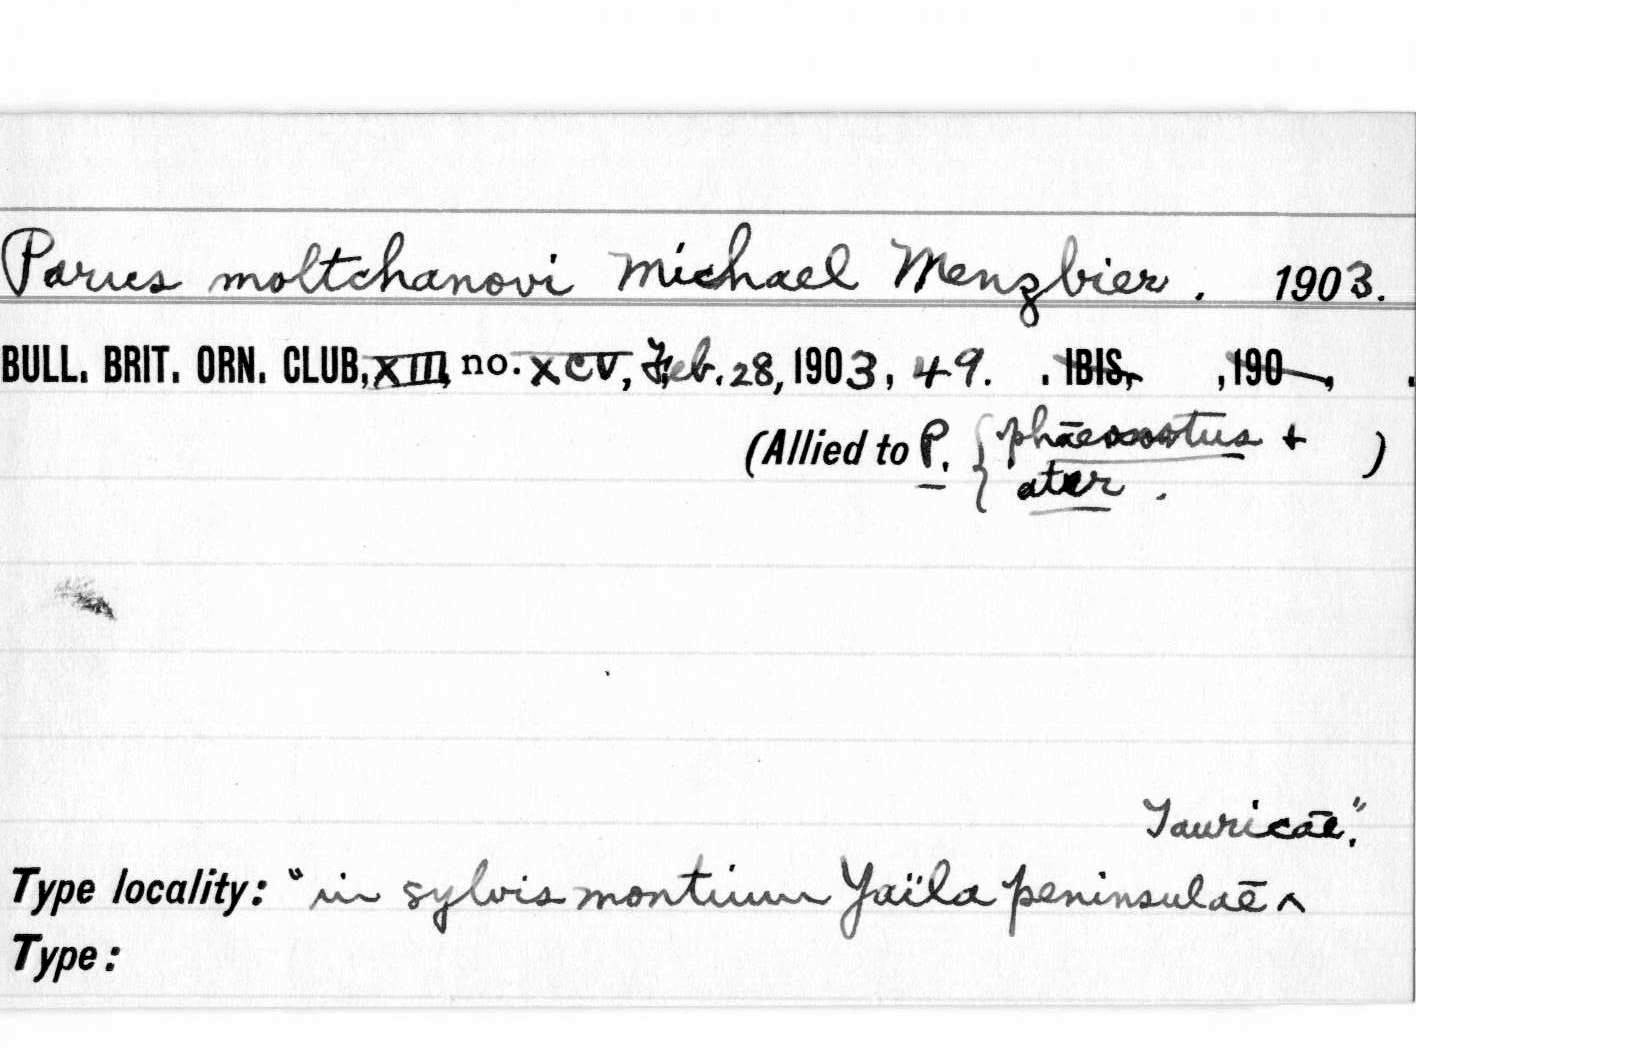 Parus moltchanovi Michael Menzbier. 1903.
BULL. BRIT. ORN. CLUB, XIII, no. XCV, Feb. 28, 1903, 49. . IBIS, , 190—, .
(Allied to P. { phaeonotus + )
ater.
Tauricae".
Type locality: "in sylvis montium Yaïla peninsulae ^
Type: